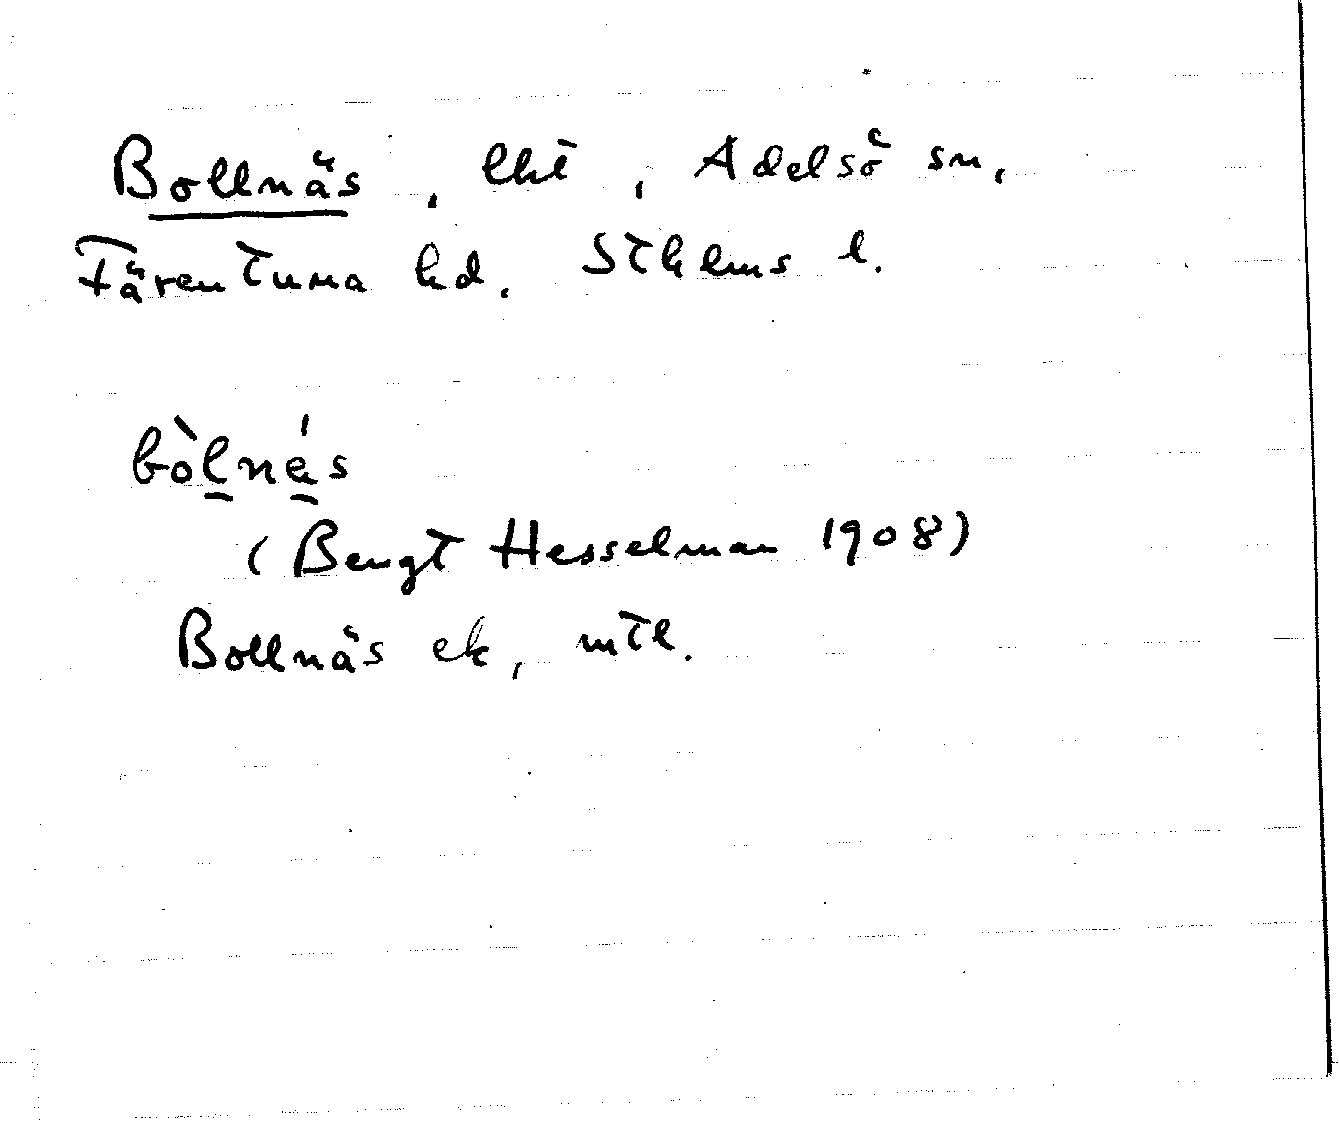 Bollnäs, lht, Adelsö sn,
Färentuna hd. Sthlms l.
bòl̠né̠s
(Bengt Hesselman 1908)
Bollnäs ek, mtl.